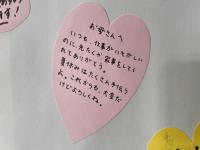 お母さんへ
いつも、仕事がいそがしい
のに、元たくか家事をしてく
れてありがとう。
夏休みはたくさん手伝う
よ。これからも、大変だ
けどよろしくね。
ます!